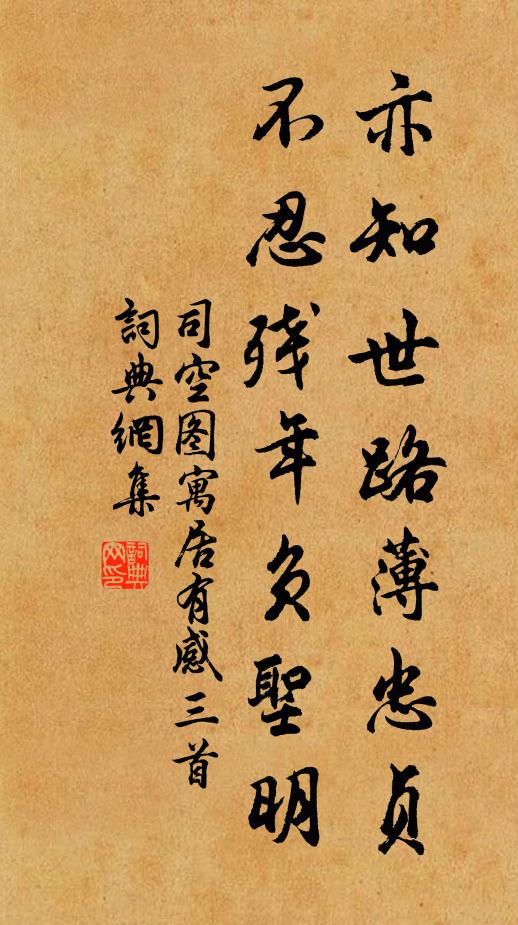 亦知世路薄忠贞
不忍残年负聖明
司空图寓居有感三首
詞典網集
詞典
网印